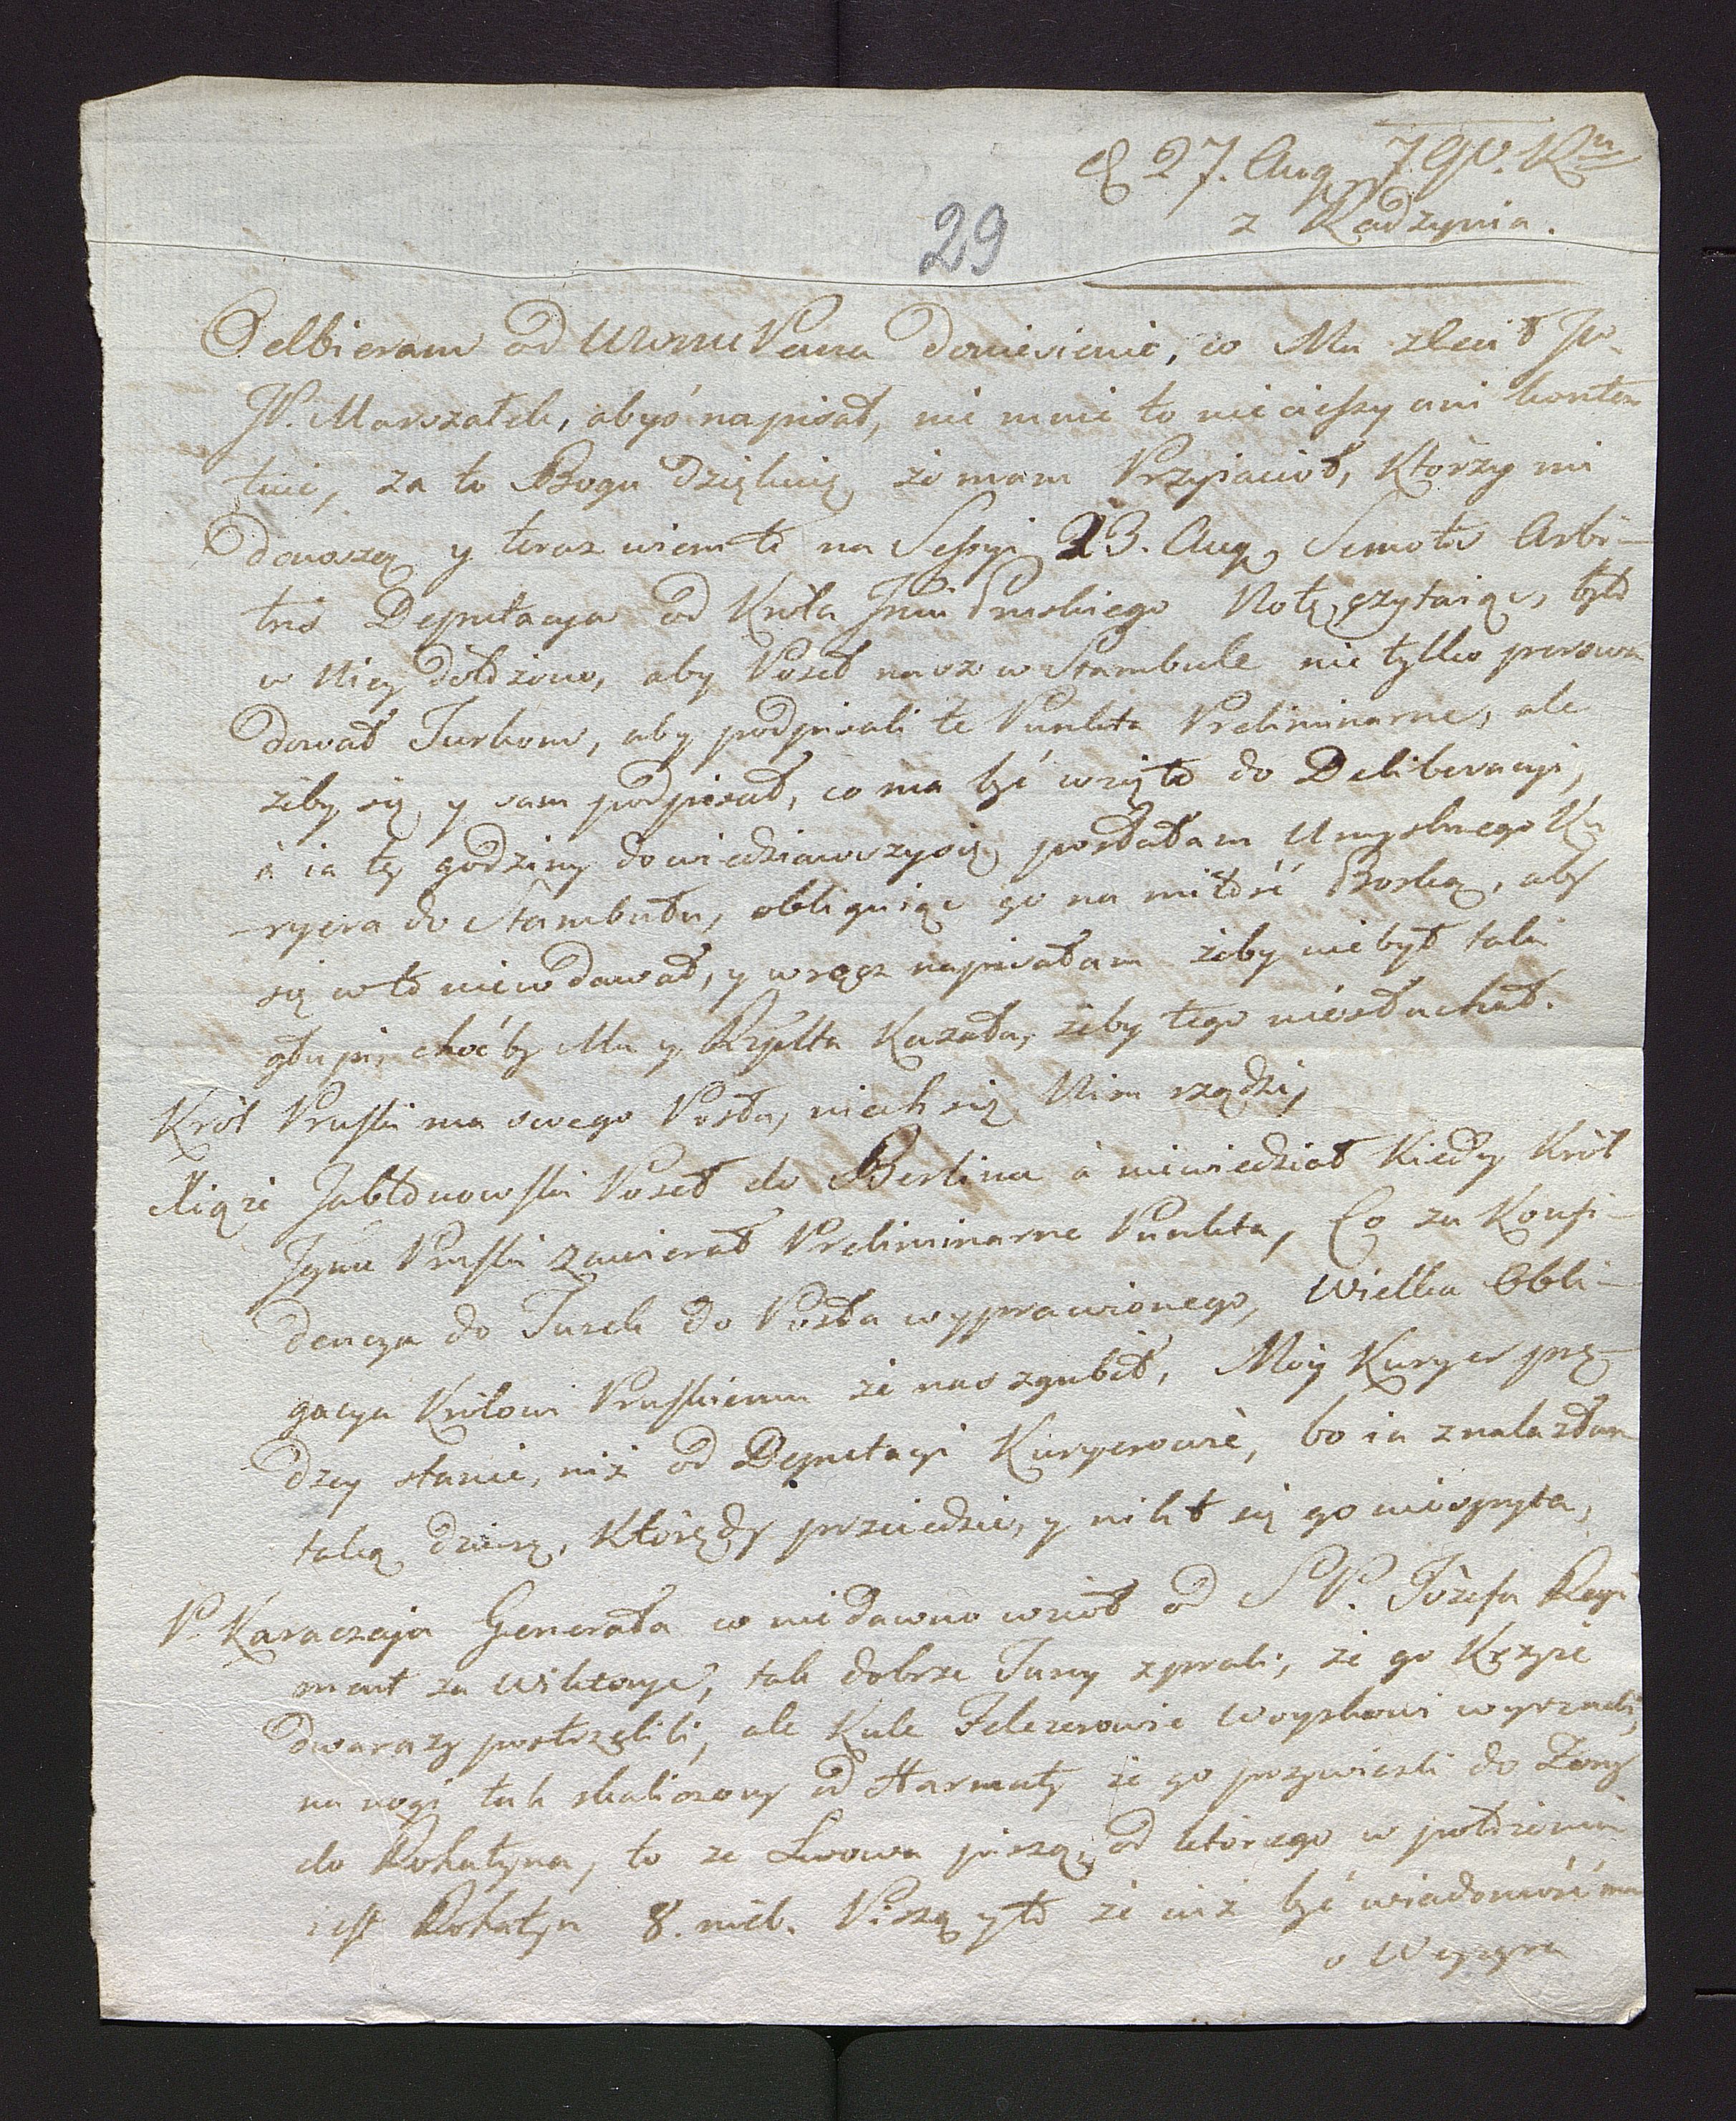 D 27. Aug 790. Ru
z Radzynia.
29
Odbieram od WMM Pana doniesienie, co Mu zlecił Jw
JP. Marszałek, abyś napisał, nie mnie to nie cieszy ani konten
tuie, za to Bogu dziękuię, że mam Przyiaciół, Którzy mi
donoszą y teraz wiem to na Sessyi 23. Aug. Semotis Arbi-
tris Deputacya od Króla Jmci Pruskiego Notę czytaiąc, było
w Niey dołożono, aby Poseł nasz w Stambule nie tylko perswa
dował Turkom, aby podpisali te Punkta Preliminarne, ale
żeby się y sam podpisał, co ma być wzięto do Deliberacyi,
à ia tę godzinę dowiedziawszysię, posłałam Umyslnego Ku
ryera do Stambułu, obliguiąc go na miłość Boską, aby
się w to niewdawał, y wręcz napisałam żeby niebył taki
głupi, choćby Mu y Rzplta Kazała, żeby tego niesłuchał.
Król Pruski ma swego Posła, niech się Nim rządzi,
Xiąże Jabłonowski Poseł do Berlina à niewiedział Kiedy Król
Jgmć Pruski zawierał Preliminarne Punkta, Co za Konfi-
dencya do Turek do Posła wyprawionego, Wielka Obli-
gacya Królowi Pruskiemu że nas zgubił, Móy Kuryer prę-
dzey stanie, niż od Deputacyi Kuryerowie, bo ia znalazłam
taką dziurę, Którędy prziedzie, y nikt się go niespyta,
P. Karaczaja Generała co niedawno wziół od S P. Józefa Regi
ment za Wiktorye, tak dobrze Turcy zprali, że go Krzyż
dwarazy postrzelili, ale Kule Felczerowie Woyskowi wyrznęli,
na nogi tak skaliczony od Harmaty że go przywiezli do Zony
do Rohatyna, to ze Lwowa piszą, od którego w położeniu
iest Rohatyn 8. mil. Piszą y to że iuż być wiadomość ma
o Wezyra